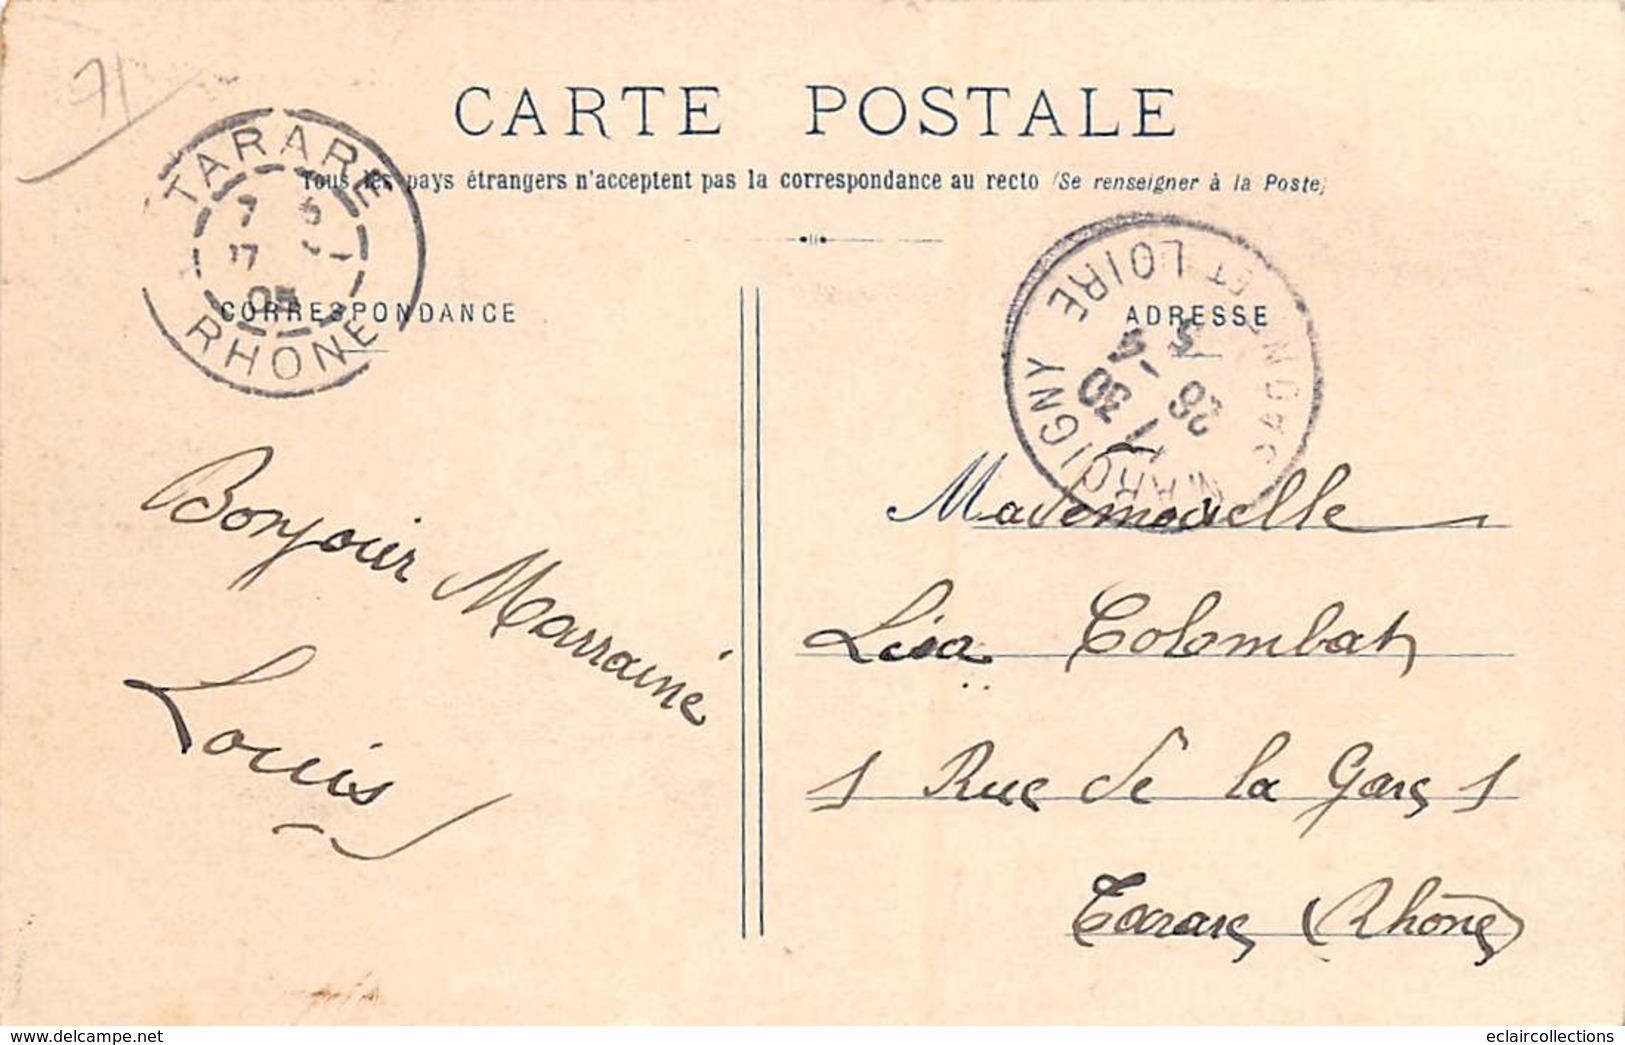 71
CARTE POSTALE
Tous les pays étrangers n'acceptent pas la correspondance au recto (Se renseigner à la Poste)
TARARE
RHONE
CORRESPONDANCE
ADRESSE
MARCIGNY
ET LOIRE
7 30
26 -4
Bonjour Marraine
Louis
Mademoiselle
Lisa Colombat
1 Rue de la Gare 1
Tarare (Rhône)
eclaircollections
www.delcampe.net